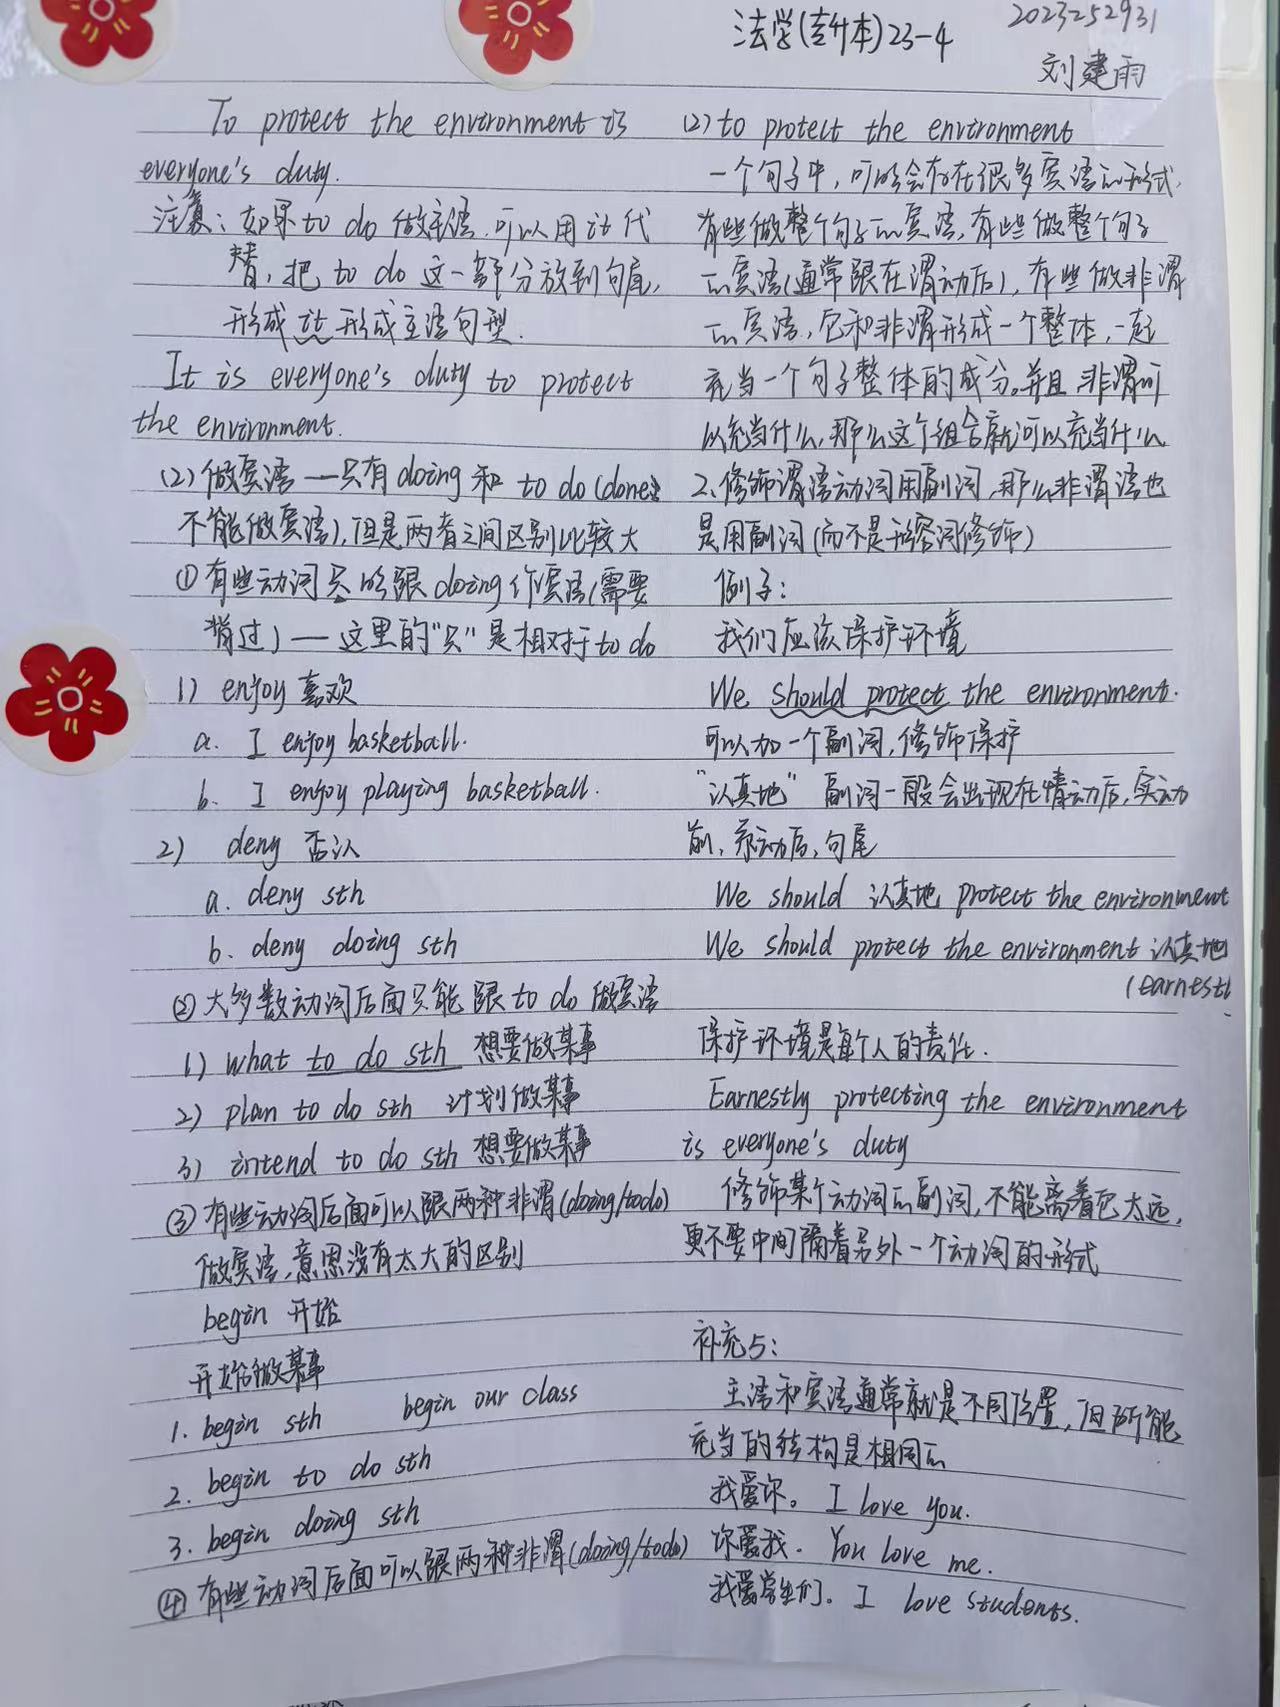 法学(专升本)23-4
2023252931
刘建雨
To protect the environment is
everyone's duty.
注意：如果to do 做主语，可以用it代
替，把 to do 这一部分放到句尾，
形成 it 形成主语句型.
It is everyone's duty to protect
the environment.
(2)做宾语——只有doing 和 to do (done
不能做宾语)，但是两者之间区别比较大
①有些动词只能跟doing作宾语(需要
背过)——这里的"只"是相对于to do
1) enjoy 喜欢
a. I enjoy basketball.
b. I enjoy playing basketball.
2) deny 否认
a. deny sth
b. deny doing sth
②大多数动词后面只能跟to do 做宾语
1) what to do sth 想要做某事
2) plan to do sth 计划做某事
3) intend to do sth 想要做某事
③有些动词后面可以跟两种非谓(doing/todo)
做宾语，意思没有太大的区别
begin 开始
开始做某事
1. begin sth begin our class
2. begin to do sth
3. begin doing sth
④有些动词后面可以跟两种非谓(doing/todo)
(2) to protect the environment
一个句子中，可能会存在很多宾语的形式，
有些做整个句子的宾语，有些做整个句子
的宾语(通常跟在谓动后)，有些做非谓
的宾语，它和非谓形成一个整体，一起
充当一个句子整体的成分。并且 非谓可
以充当什么，那么这个组合就可以充当什么
2、修饰谓语动词用副词，那么非谓语也
是用副词(而不是形容词修饰)
例子：
我们应该保护环境
We should protect the environment.
可以加一个副词，修饰保护
"认真地" 副词一般会出现在情动后，实动
前，系动后，句尾
We should 认真地 protect the environment
We should protect the environment 认真地
(earnestl
保护环境是每个人的责任.
Earnestly protecting the environment
is everyone's duty
修饰某个动词的副词，不能离着它太远，
更不要中间隔着另外一个动词的形式
补充5：
主语和宾语通常就是不同位置，但所能
充当的结构是相同的
我爱你。 I love you.
你爱我. You love me.
我爱学生们。I love students.